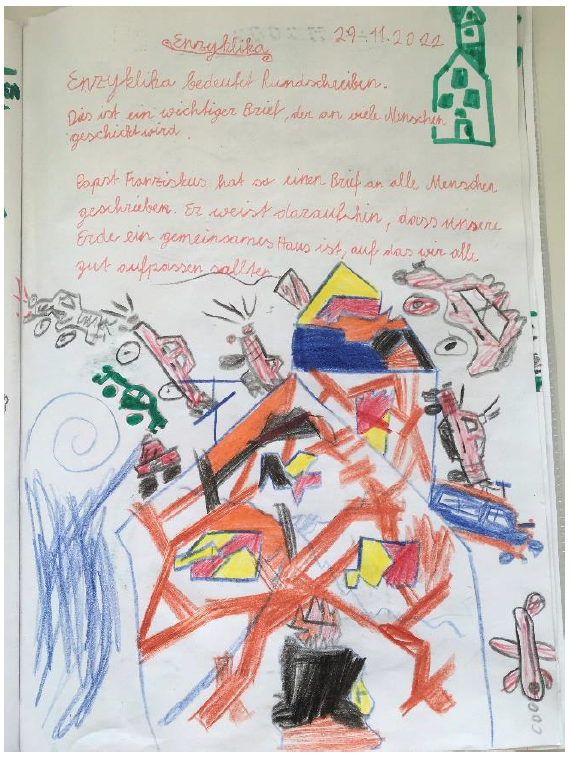 Enzyklika
29-11.2022
Enzyklika bedeutet Rundschreiben.
Dies ist ein wichtiger Brief, der an viele Menschen
geschickt wird.
Papst Franziskus hat so einen Brief an alle Menschen
geschrieben. Er weist darauf hin, dass unsere
Erde ein gemeinsames Haus ist, auf das wir alle
gut aufpassen sollten